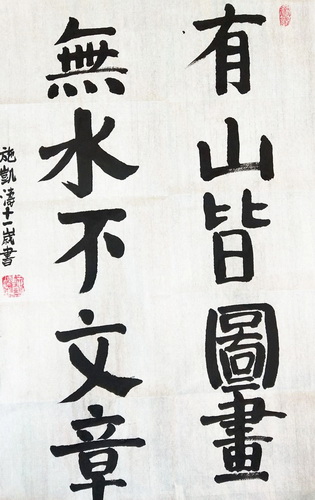 有山皆圖畫
無水不文章
施凱濤十一歲書